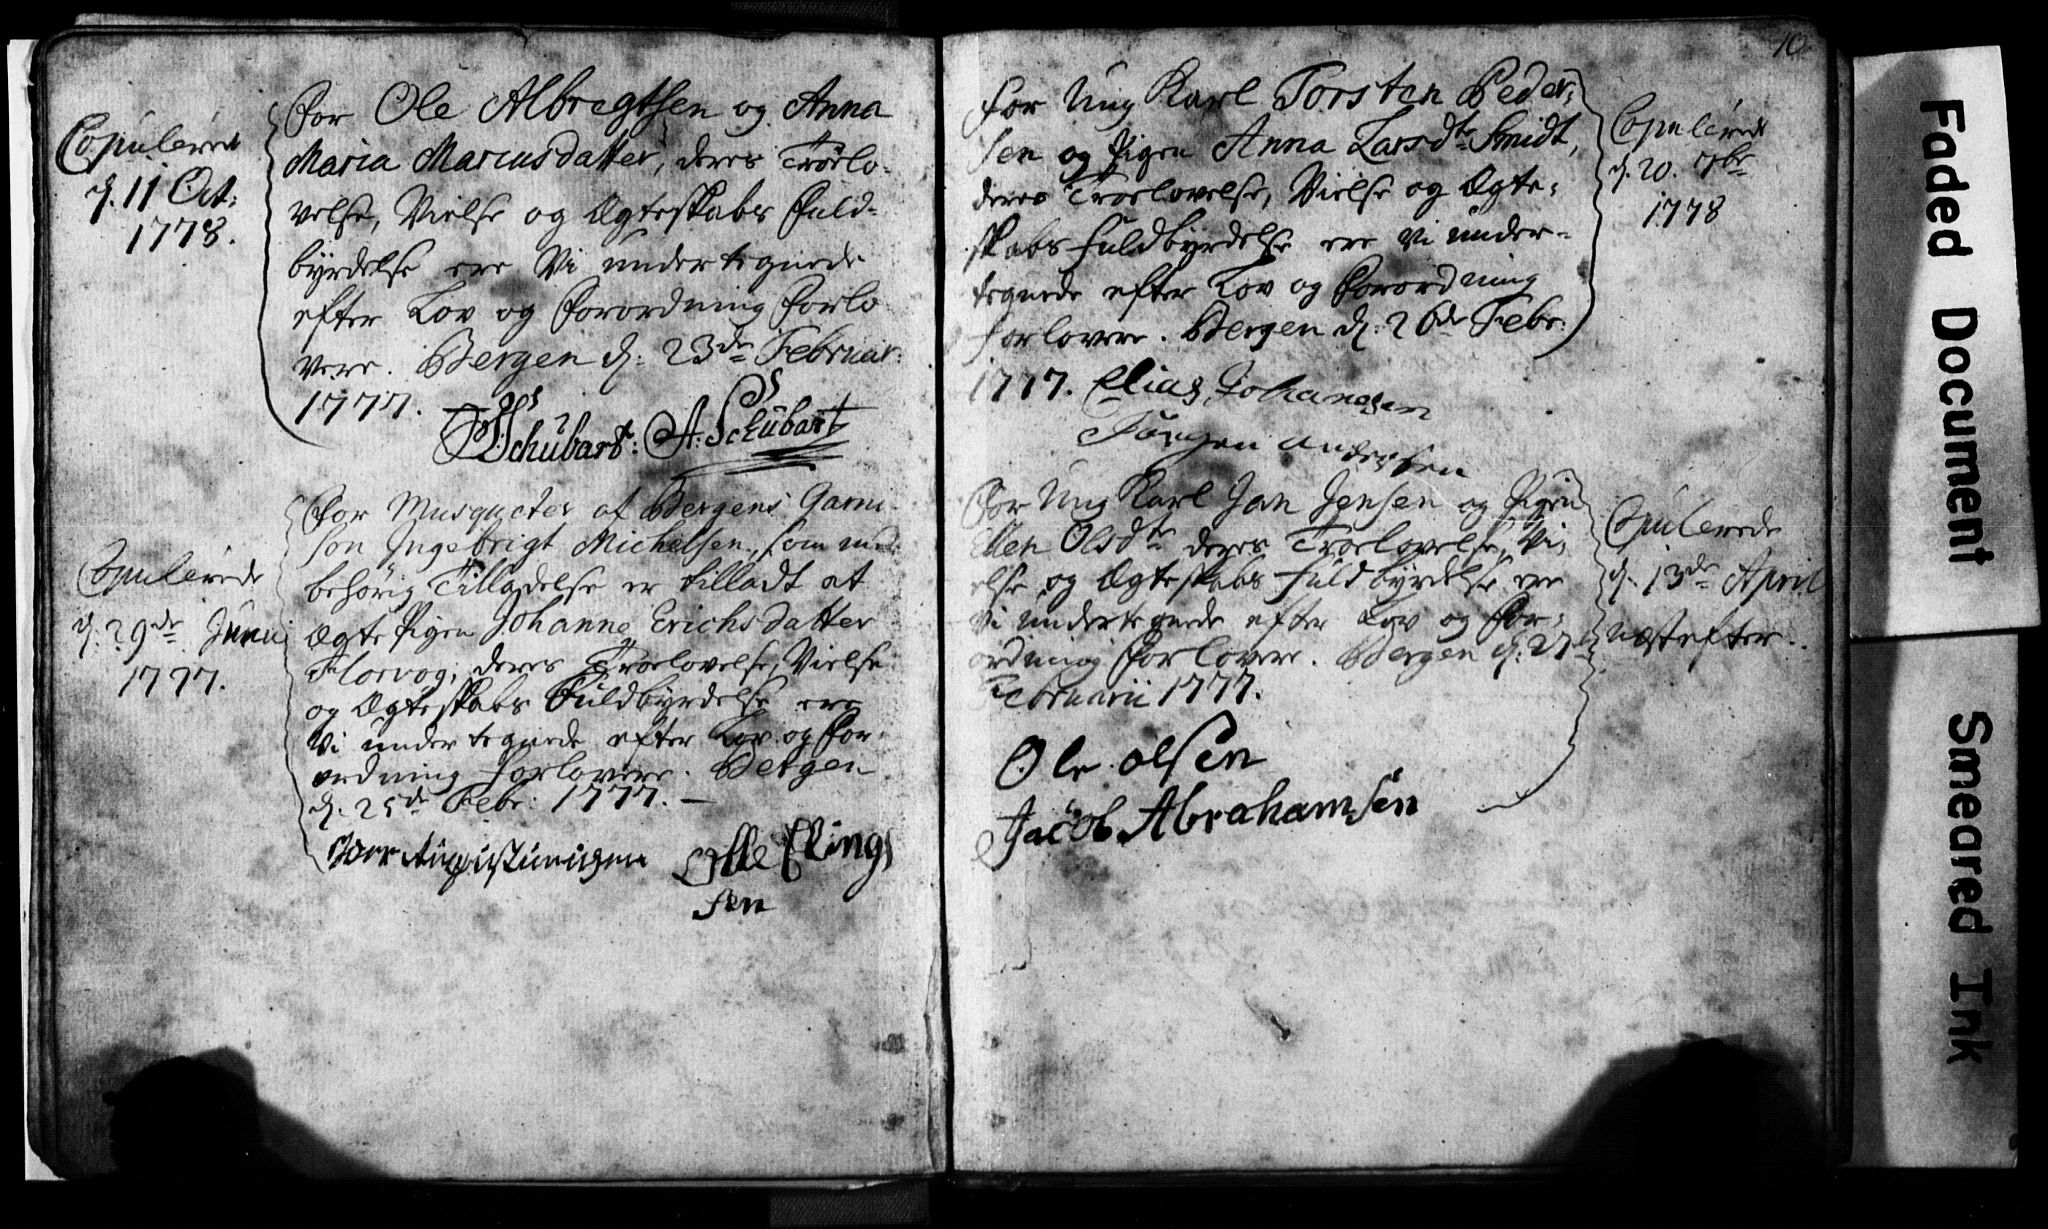 Copulerede
d. 11 Oct:
1778.
For Ole Albregtsen og Anna
Maria Marcusdatter, deres Troelo-
velse, Vielse og Ægteskabs Fuld-
byrdelse ere Vi undertegnede
efter Lov og Forordning Forlo
vere. Bergen d: 23de Februar:
1777.
Schubart: A: Schübart
Copulerede
d: 29de Junii
1777.
For Musqueter af Bergens Garni-
son Ingebrigt Michelsen, som med
behörig Tilladelse er tilladt at
ægte Pigen Johanne Erichsdatter
Florvog; deres Troelovelse, Vielse
og Ægteskabs Fuldbyrdelse ere
Vi undertegnede efter Lov og For-
ordning Forlovere. Bergen
d: 25de Febr: 1777. -
Olle Ellings
sen
10.
For Ung Karl Torsten Peder-
sen og Pigen Anna Larsdtr Smidt,
deres Troelovelse, Vielse og Ægte-
skabs Fuldbyrdelse ere Vi under-
tegnede efter Lov og Forordning
Forlovere. Bergen d: 26de Febr:
1777. Elias Johanesen
Jörgen andersen
Copulerede
d. 20. 7br
1778
For Ung Karl Jan Jensen og Pigen
Ellen Olsdtr deres Troelovelse, Vi-
else og Ægteskabs Fuldbyrdelse ere
Vi undertegnede efter Lov og For-
ordning Forlovere. Bergen d: 27
Februarii 1777.
Ole olsen
Jacob Abrahamsen
Copulerede
d. 13de April
næstefter.
Faded Document
Smeared Ink